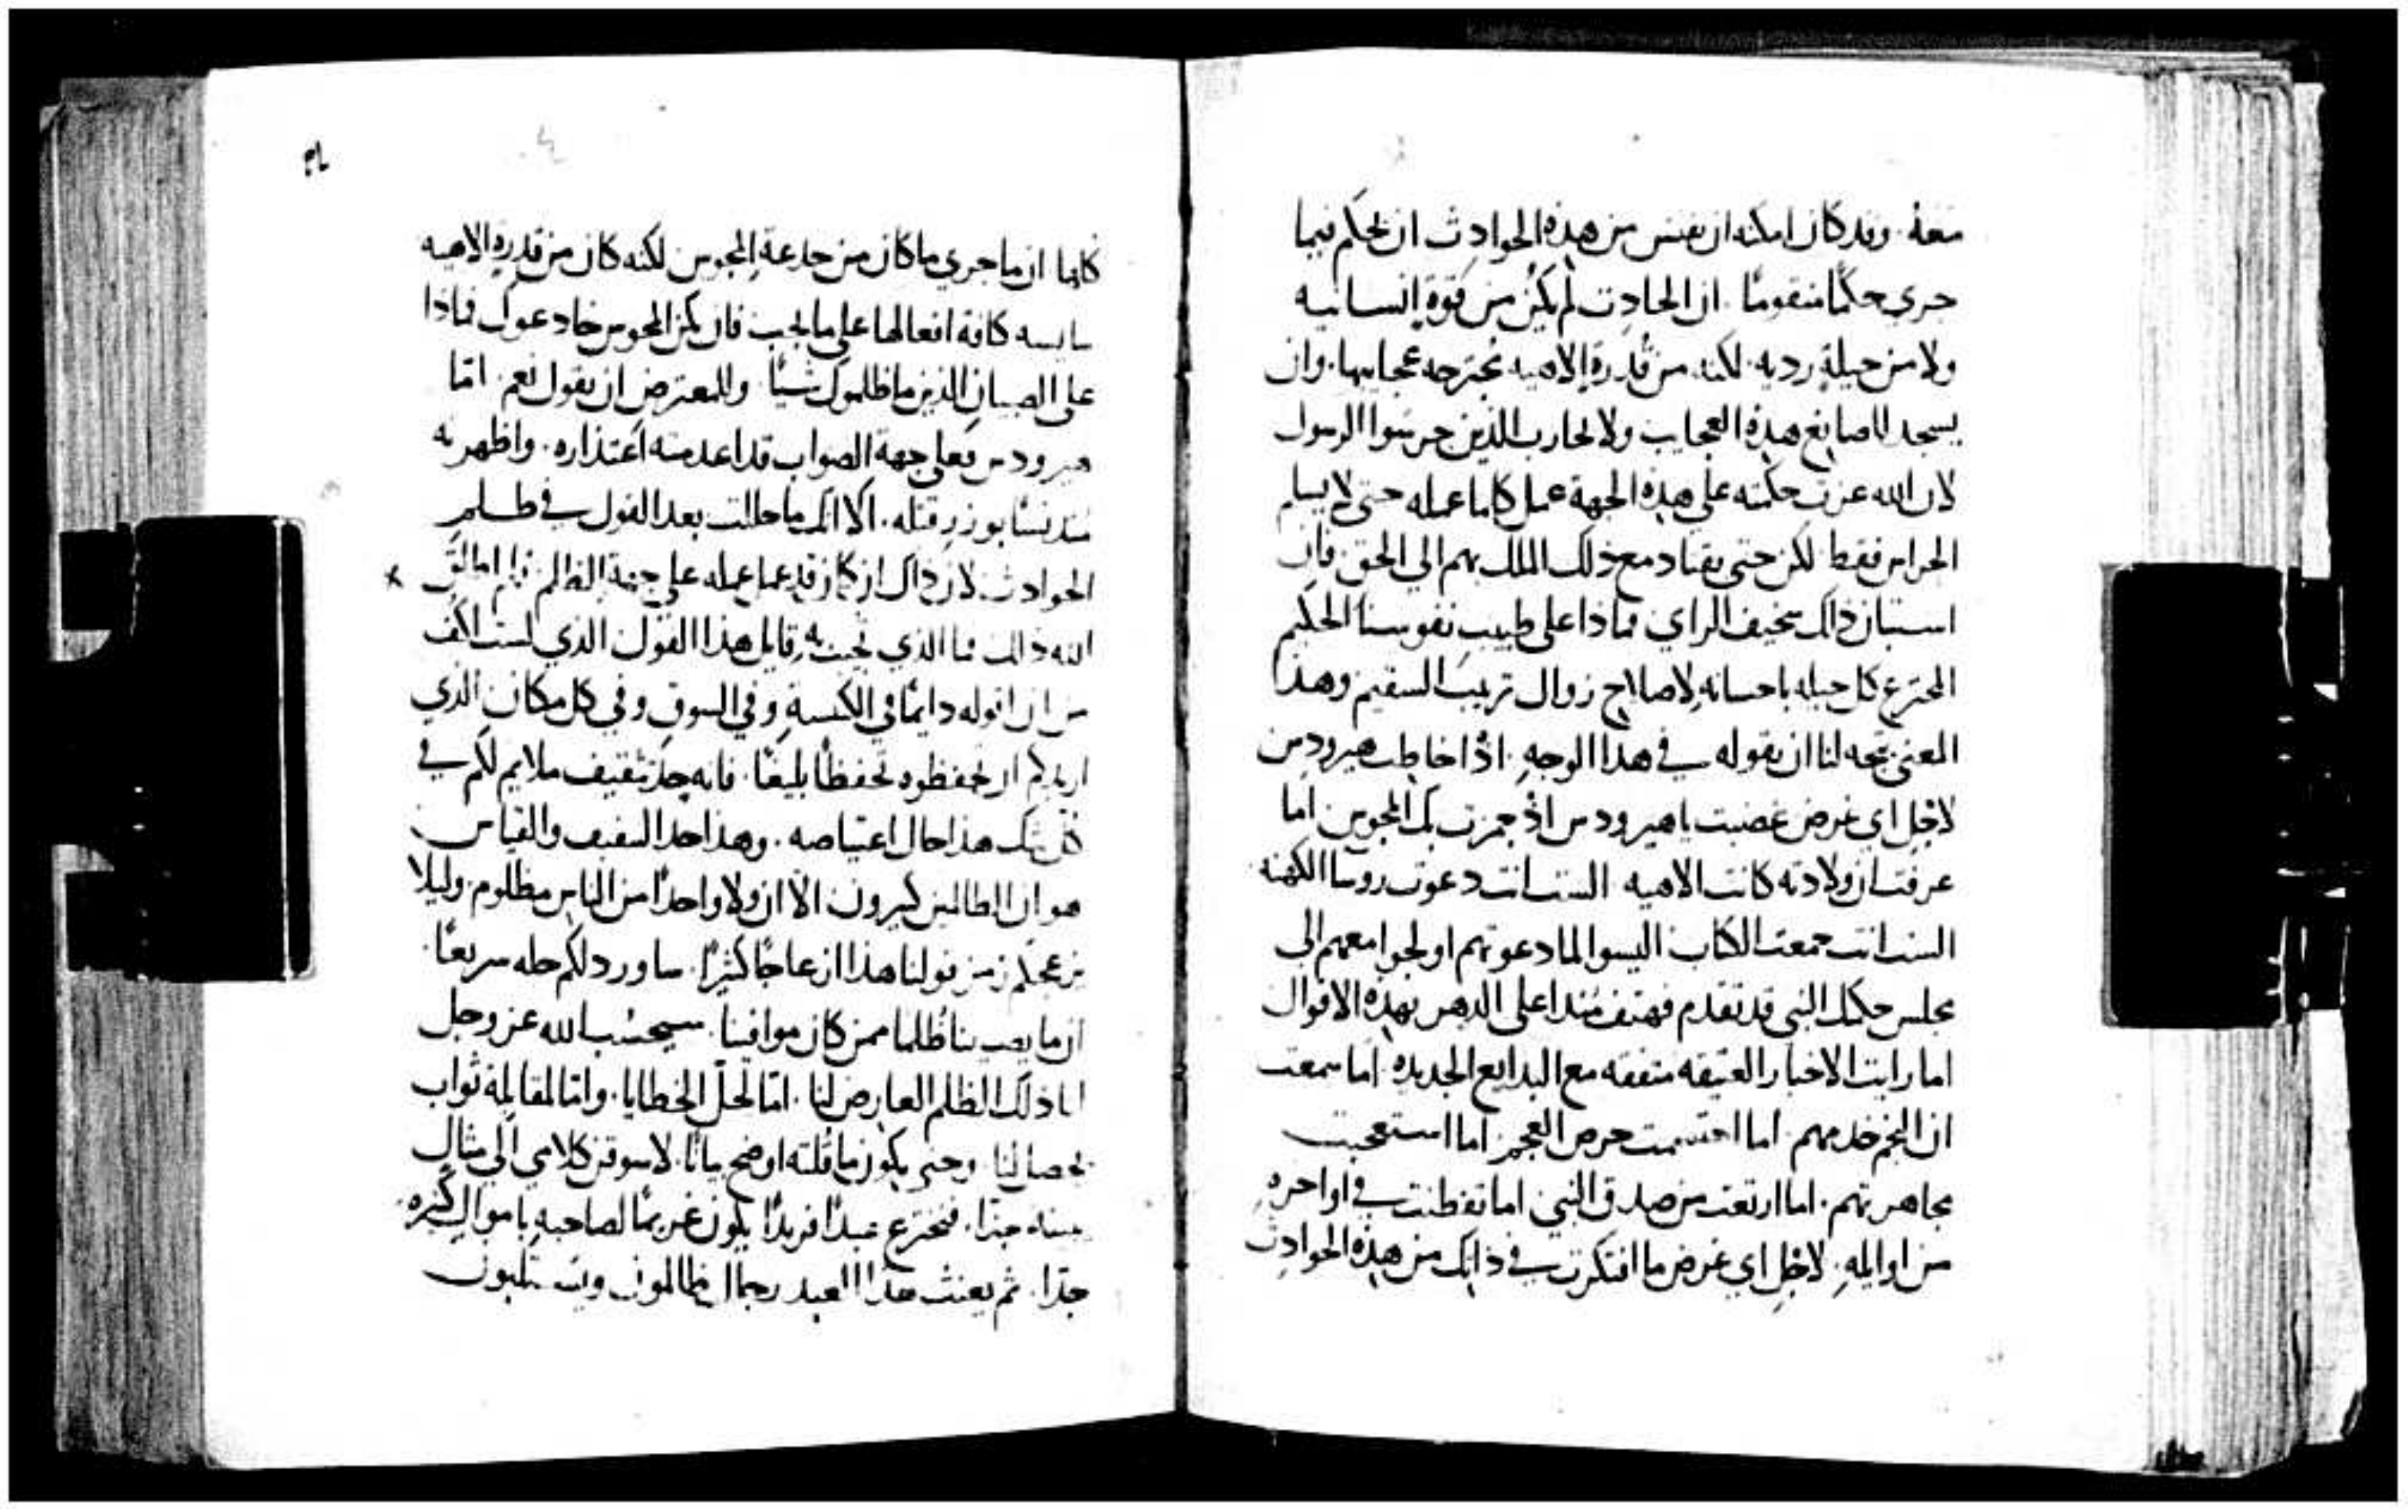 منعه. وقد كان امكنه ان يفتش من هذه الحوادث ان يحكم فيما
جري حكمًا منقومًا. ان الحادث لم يكن من قوة انسانيه
ولا من حيلة رديه. لكنه من قدرة الاهيه تجترحه عجايبها. وان
يسجد لصانع هذه العجايب ولا يحارب الذين حرسوا الرسول
لان الله عزت حكمته علي هذه الجهة عمل كلما عمله حتى لا يسلم
الحراس فقط لكن حتى يقتاد مع ذلك الملك بهم الي الحق. فان
استبان ذاك سخيف الراي فماذا على طبيب نفوسنا الحكيم
المخترع كل حيله باحسانه لاصلاح زوال تريب السقيم وهذا
المعنى يتجه لنا ان نقوله في هذا الوجه. اذا خاطب هيرودس
لاجل اي غرض غضبت يا هيرودس اذ جمزت بك المجوس اما
عرفت ان ولادته كانت الاهيه الست انت دعوت روسا الكهنه
الست انت جمعت الكتاب اليسوا لما دعوتهم اولجوا معهم الى
مجلس حكمك النبي قد تقدم فهتف منذ اعلى الدهر بهذه الاقوال
اما رايت الاخبار العتيقه متفقه مع البدايع الجديده اما سمعت
ان النجم خدمهم اما احتشمت حرص العجم اما استعجبت
مجاهرتهم. اما ارتعت من صدق النبي اما تفطنت في اواخره
من اوايله. لاجل اي غرض ما افتكرت في ذلك من هذه الحوادث
كلها ان ما جري ما كان من خدعة المجوس لكنه كان من قدره الاهيه
سايسه كافة افعالها على ما يجب فان يكن المجوس خادعوك فماذا
على الصبيان الذين ما ظلموك شيئًا وللمعترض ان يقول نعم. امّا
هيرودس فعلى جهة الصواب قد اعدمته اعتذاره. واظهرته
بوزر قتله. الا انك ما حللت بعد القول في ظلم
الحوادث لان ذاك ان كان قد عمل ما عمله على جهة الظلم فلم اطلق
الله ذلك فما الذي نجيب به قايل هذا القول الذي لست اكف
من ان اقوله دايمًا في الكنيسة وفي السوق وفي كل مكان الذي
اريدكم ان تحفظوه تحفظًا بليغًا. فانه حد تثقيف ملايم لكم في
كل شك هذا حال اعتياصه. وهذا حد التثقيف والقياس
هو ان الظالمين كثيرون الا ان ولا واحدًا من الناس مظلوم. وليلا
يزعجكم من قولنا هذا ازعاجًا كثيرًا. ساورد لكم حله سريعًا.
ان ما يصيبنا ظلما ممن كان موافينا. سيحسب الله عز وجل
لنا ذلك الظلم العارض لنا. امّا لحل الخطايا. وامّا لمقابلة ثواب
تحصل لنا. وحتى يكون ما قلته اوضح بيانًا لاسوقن كلامي الي مثال
جدّا. فنخترع عبدًا فريدًا يكون غريمًا لصاحبه باموال كثيره
جدّا. ثم يعنت هذا العبد رجال ظالمون ويستلبون